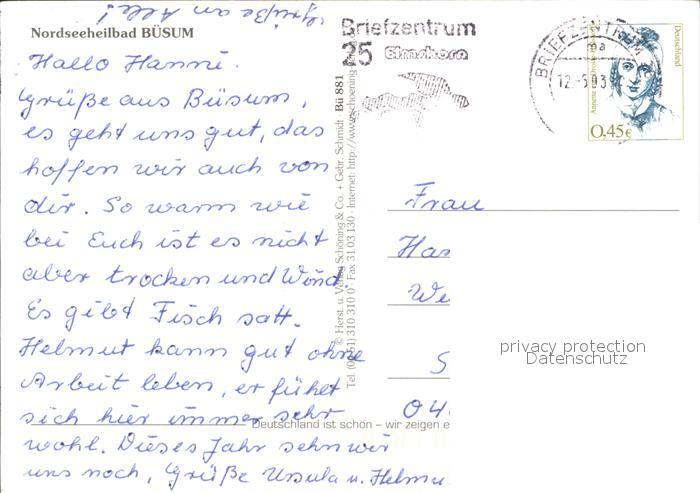 Grüße an Alle!
Nordseeheilbad BÜSUM
Hallo Hanni.
Grüße aus Büsum,
es geht uns gut, das
hoffen wir auch von
dir. So warm wie
bei Euch ist es nicht
aber trocken und Wind.
Es gibt Fisch satt.
Helmut kann gut ohne
Arbeit leben, er fühlt
sich hier immer sehr
wohl. Dieses Jahr sehn wir
uns noch, Grüße Ursula u. Helmu
© Herst. u. Verlag Schöning & Co. + Gebr. Schmidt Bü 881
310 310 0 · Fax 31 03 130 · Internet: http://www.schoening
Deutschland ist schön – wir zeigen e
Briefzentrum
25 Elmshorn
BRIEFZENTRUM
ma
12.-5.03
Deutschland
Annette
0,45€
Frau
Ha
We
S
04
privacy protection
Datenschutz